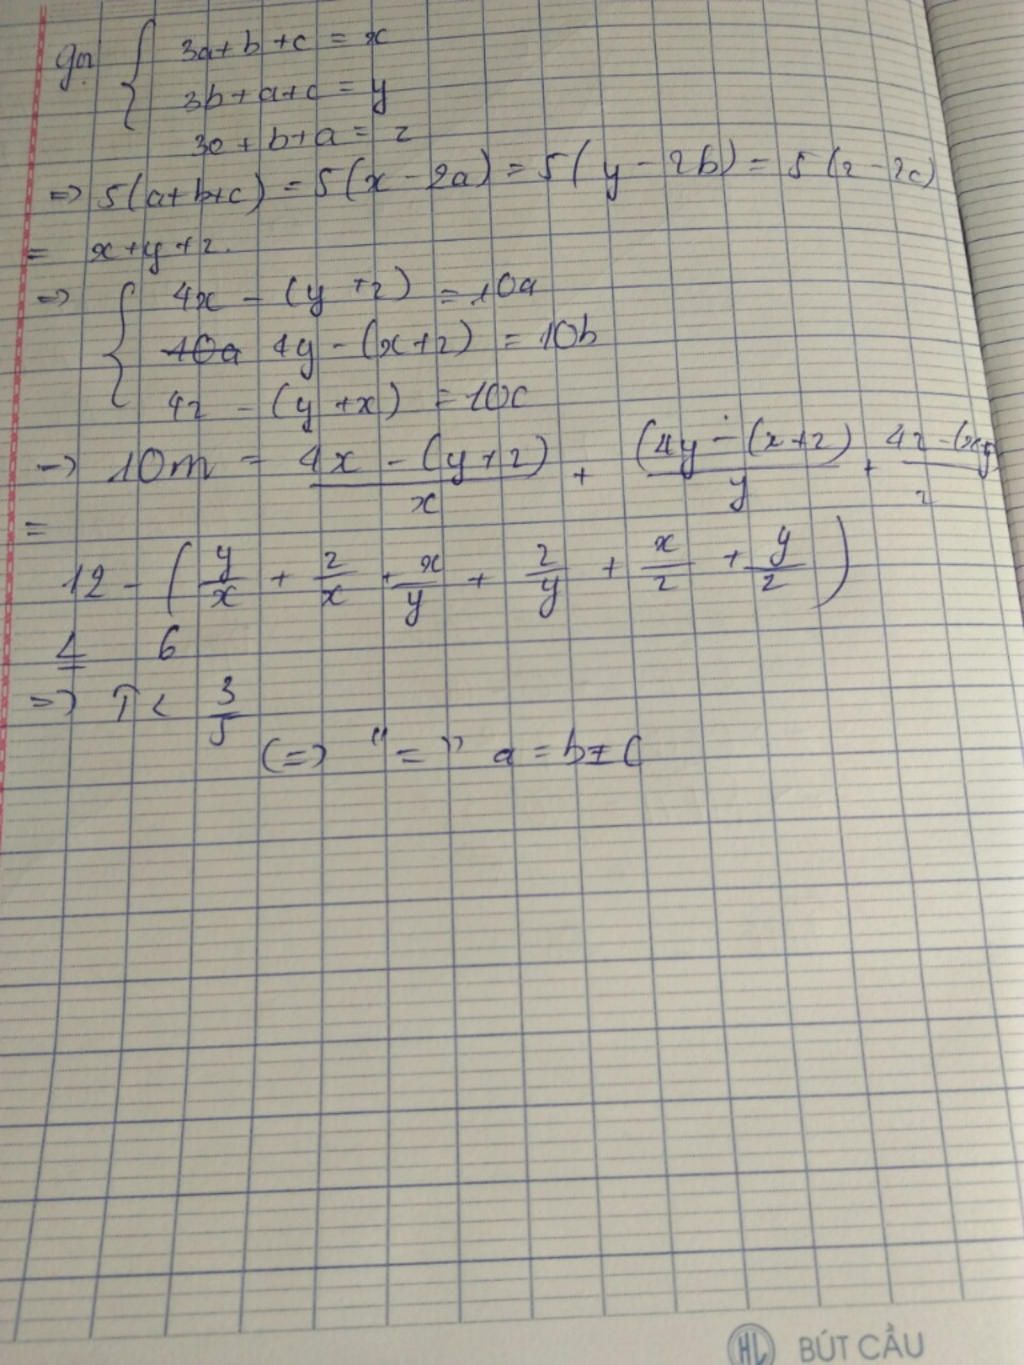 Gọi { 3a + b + c = x
3b + a + c = y
3c + b + a = z
=> 5(a+b+c) = 5(x - 2a) = 5(y - 2b) = 5(z - 2c)
= x + y + z.
=> { 4x - (y + z) = 10a
4y - (x + z) = 10b
4z - (y + x) = 10c
-> 10m = \frac{4x - (y + z)}{x} + \frac{(4y - (x + z)}{y} + \frac{4z - (x+y)}{z}
=
12 - ( \frac{y}{x} + \frac{z}{x} + \frac{x}{y} + \frac{z}{y} + \frac{x}{z} + \frac{y}{z} )
≤ 6
=> T < \frac{3}{5}
(=> "=" a = b = c
BÚT CẦU